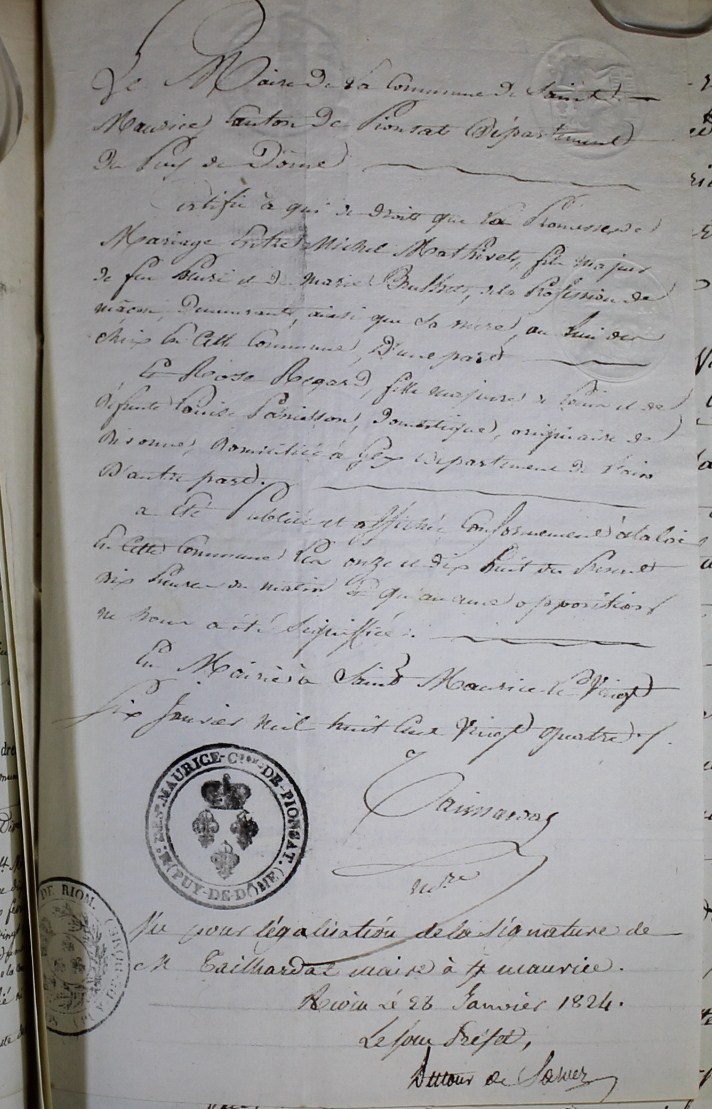 Le Maire de la Commune de Saint
Maurice, Canton de Pionsat Département
du Puy de Dôme
Certifie à qui de droit que la Promesse de
Mariage Entre Michel Mathivet, fils majeur
de feu et de Marie de la Profession de
maçon, Demeurant, ainsi que sa mere, au lieu des
en Cette Commune, D'une part
Et Rose Regard, fille majeure de et de
défunte Louise Domestique, originaire de
Divonne, Domiciliée à Gex Département de l'ain
D'autre part.
a été Publiée et affichée Conformément à la loi
En Cette Commune les onze et dix huit du Présent
dix heures du matin et qu'aucune opposition
ne nous a été Signifiée.
En Mairie à Saint Maurice le Vingt
Six Janvier mil huit Cent Vingt quatre
Tailhardat
MRIE DE ST MAURICE-CTON-DE-PIONSAT.
(PUY-DE-DÔME)
DE RIOM.
Vu pour légalisation de la Signature de
M Tailhardat maire à St maurice.
Riom le 26 Janvier 1824.
Le sous Préfet,